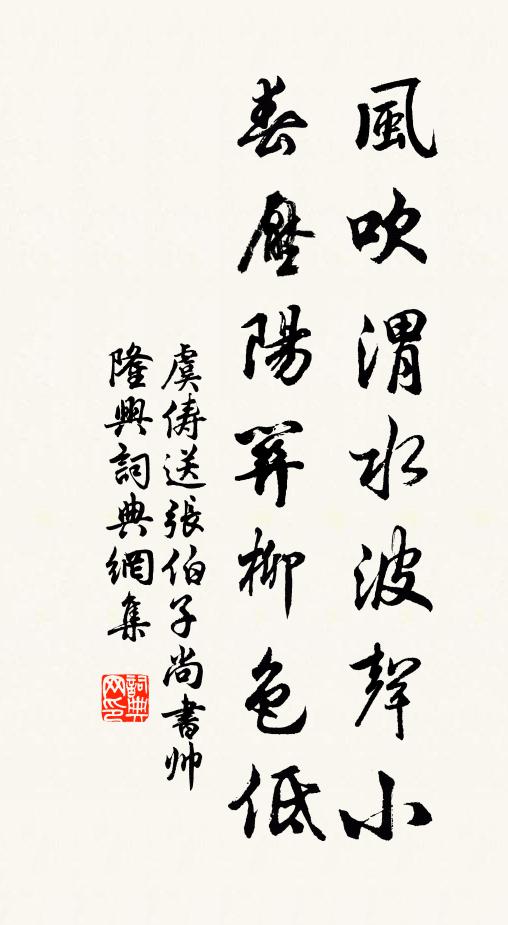 風吹渭水波聲小
春壓陽關柳色低
虞儔送張伯子尚書帥
隆興詞典網集
詞典
网印